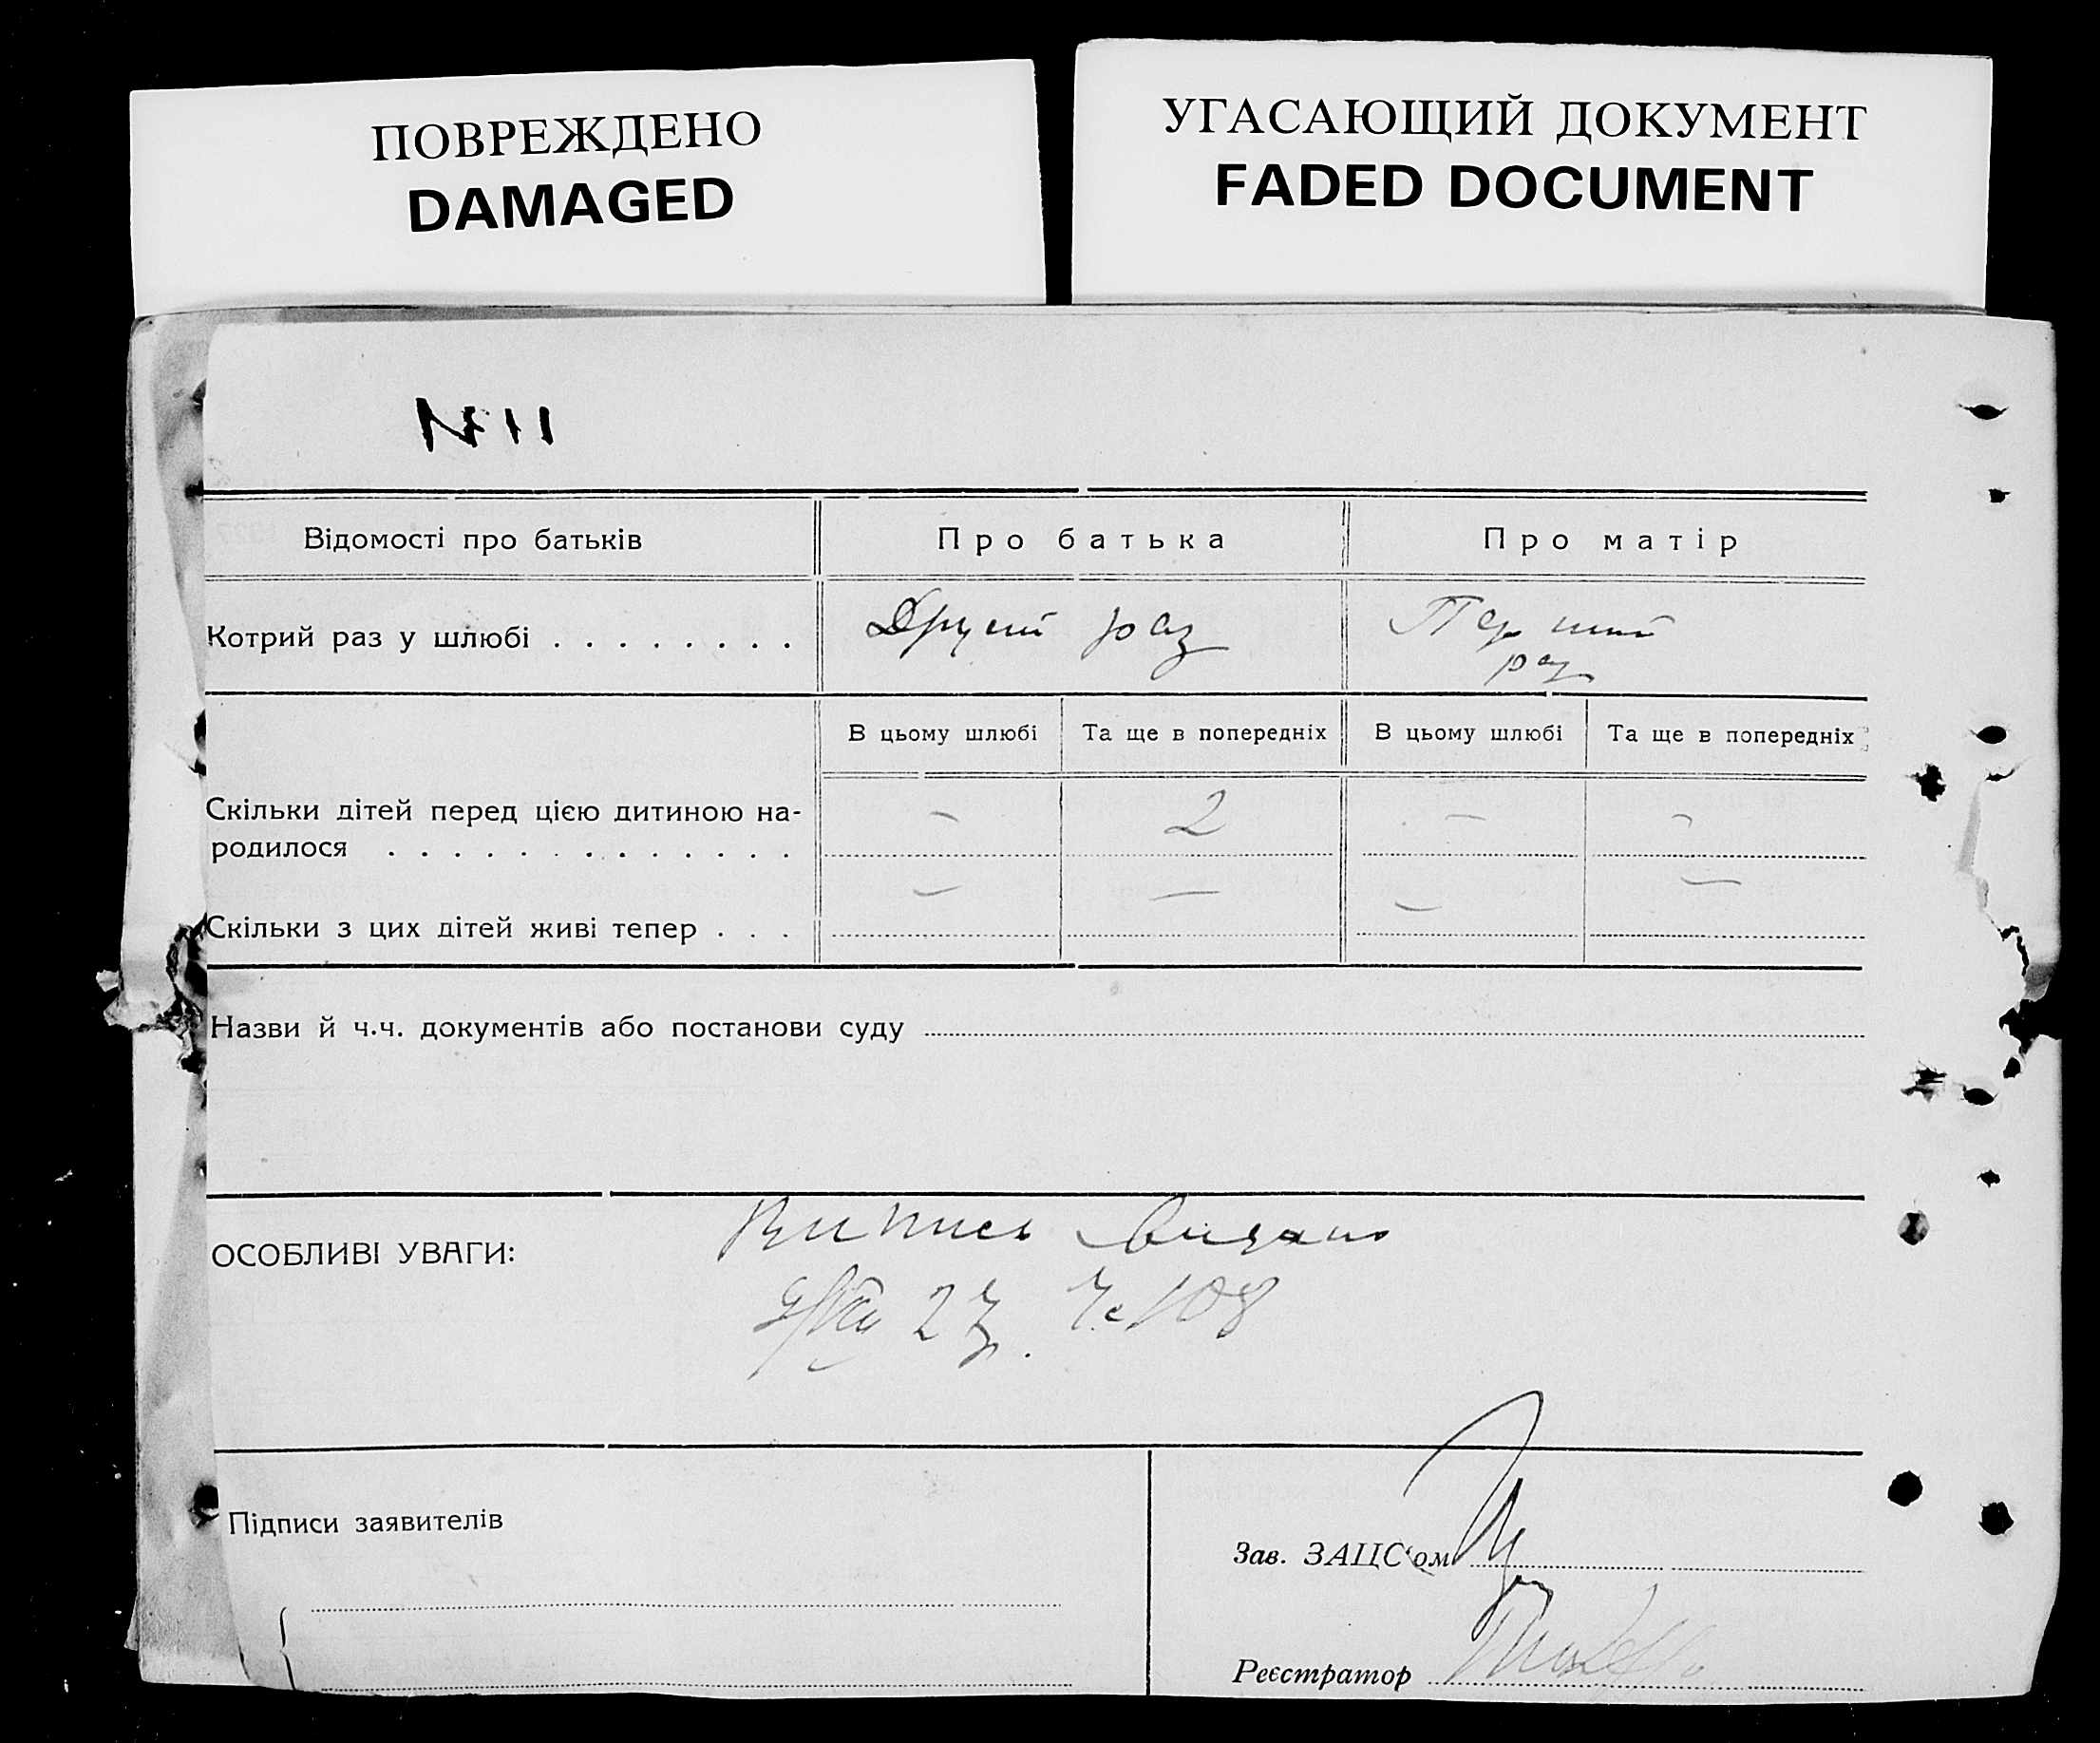 ПОВРЕЖДЕНО
DAMAGED
УГАСАЮЩИЙ ДОКУМЕНТ
FADED DOCUMENT
Відомості про батьків
Про батька
Про матір
Котрий раз у шлюбі . . . . . . . .
Другий раз
Перший
раз
В цьому шлюбі
Та ще в попередніх
В цьому шлюбі
Та ще в попередніх
Скільки дітей перед цією дитиною на-
– 2 – –
родилося . . . . . . . . . . . . .
Скільки з цих дітей живі тепер . . .
– – – –
Назви й ч.ч. документів або постанови суду
ОСОБЛИВІ УВАГИ:
Випись видано
27. 108
Підписи заявителів
Зав. ЗАЦС‘ом
Реєстратор